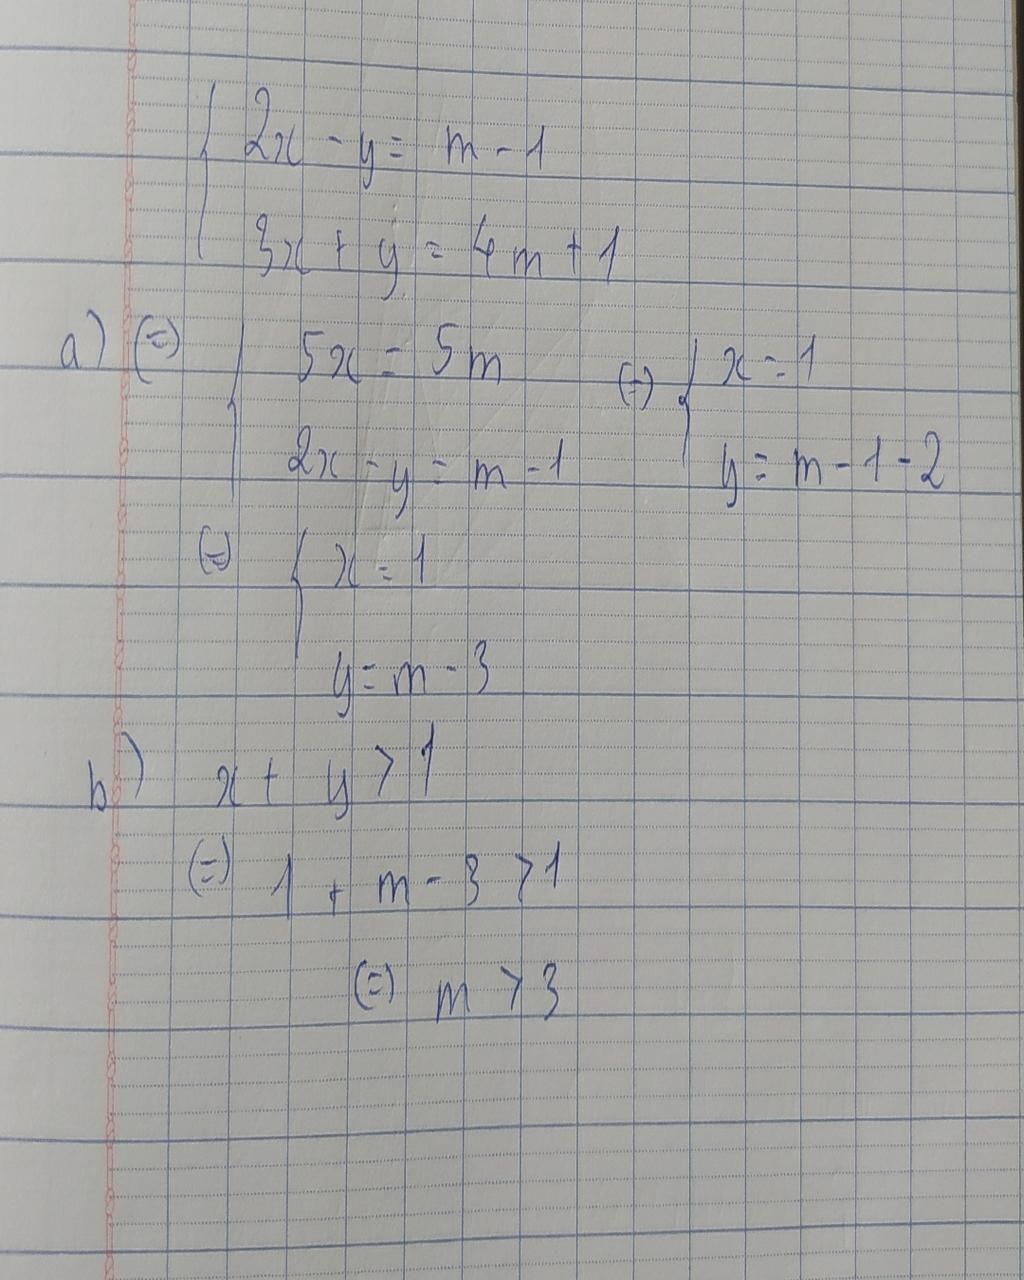 { 2x - y = m - 1
3x + y = 4m + 1
a) (=) { 5x = 5m (=) { x = 1
2x - y = m - 1 y = m - 1 - 2
(=) { x = 1
y = m - 3
b) x + y > 1
(=) 1 + m - 3 > 1
(=) m > 3